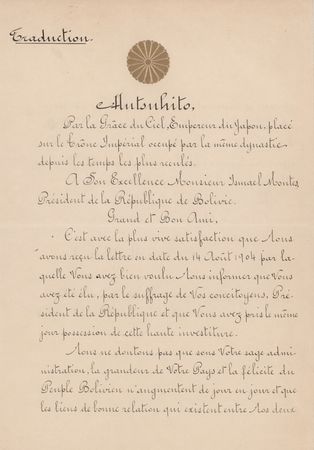 Traduction.
Mutsuhito,
Par la Grâce du Ciel, Empereur du Japon, placé
sur le Trône Impérial occupé par la même dynastie
depuis les temps les plus reculés.
A Son Excellence Monsieur Ismael Montes
Président de la République de Bolivie.
Grand et Bon Ami,
C'est avec la plus vive satisfaction que Nous
avons reçu la lettre en date du 14 Août 1904 par la-
quelle Vous avez bien voulu Nous informer que Vous
avez été élu, par le suffrage de Vos concitoyens, Pré-
sident de la République et que Vous avez pris le même
jour possession de cette haute investiture.
Nous ne doutons pas que sous Votre sage admi-
nistration, la grandeur de Votre Pays et la félicité du
Peuple Bolivien n'augmentent de jour en jour et que
les liens de bonne relation qui existent entre Nos deux